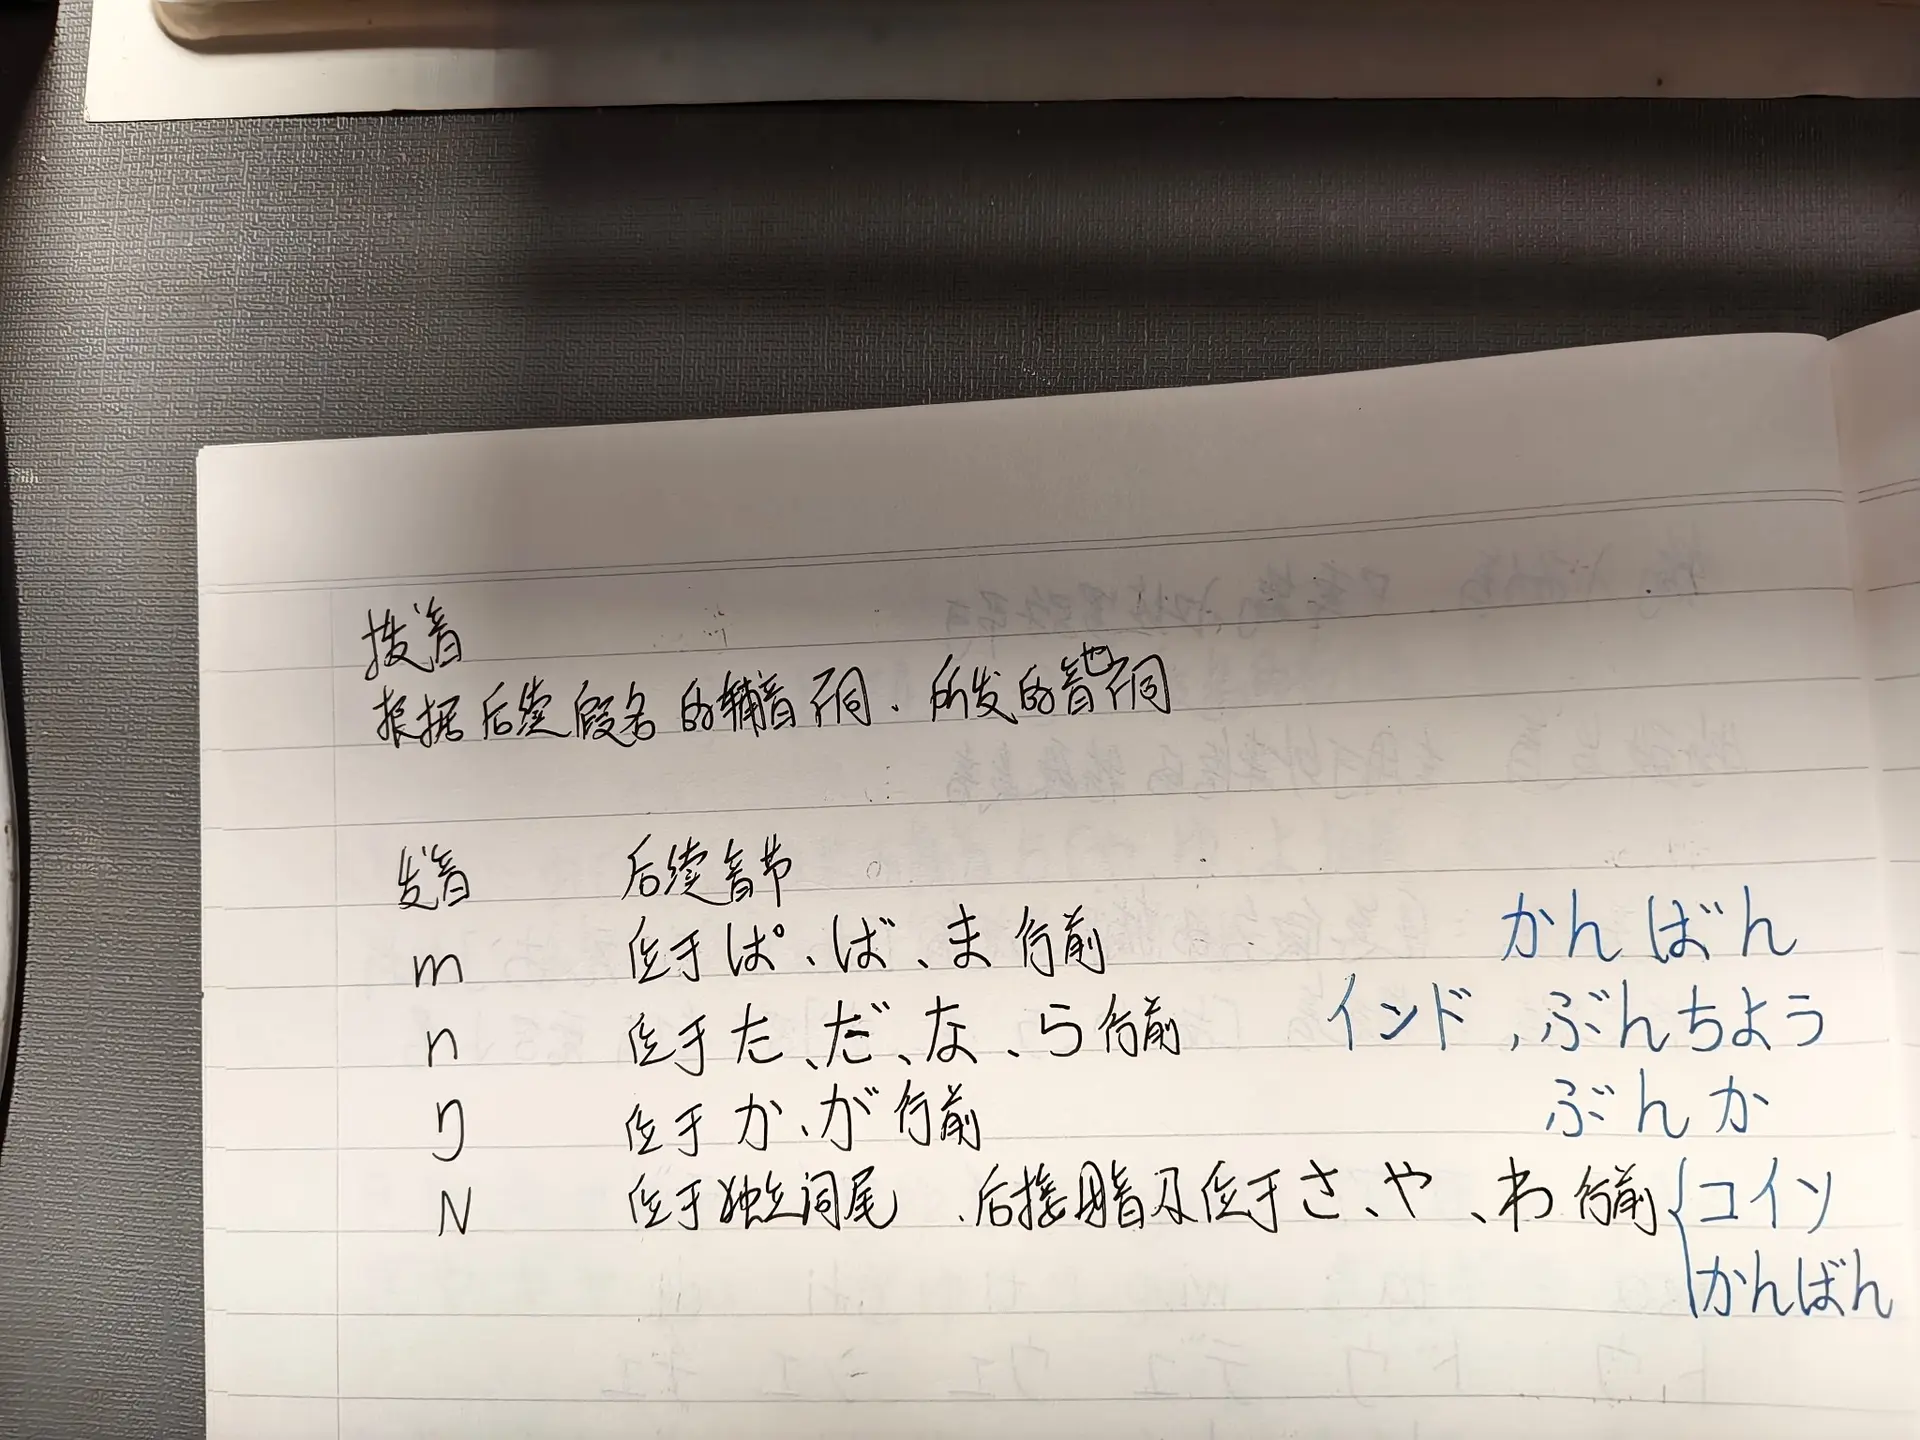 拨音
根据后续假名的辅音不同、所发的音也不同
发音 后续音节
m 位于ぱ、ば、ま行前 かんばん
n 位于た、だ、な、ら行前 インド,ぶんちよう
ŋ 位于か、が行前 ぶんか
N 位于独立词尾、后接元音及位于さ、や、わ行前 コイン
かんばん